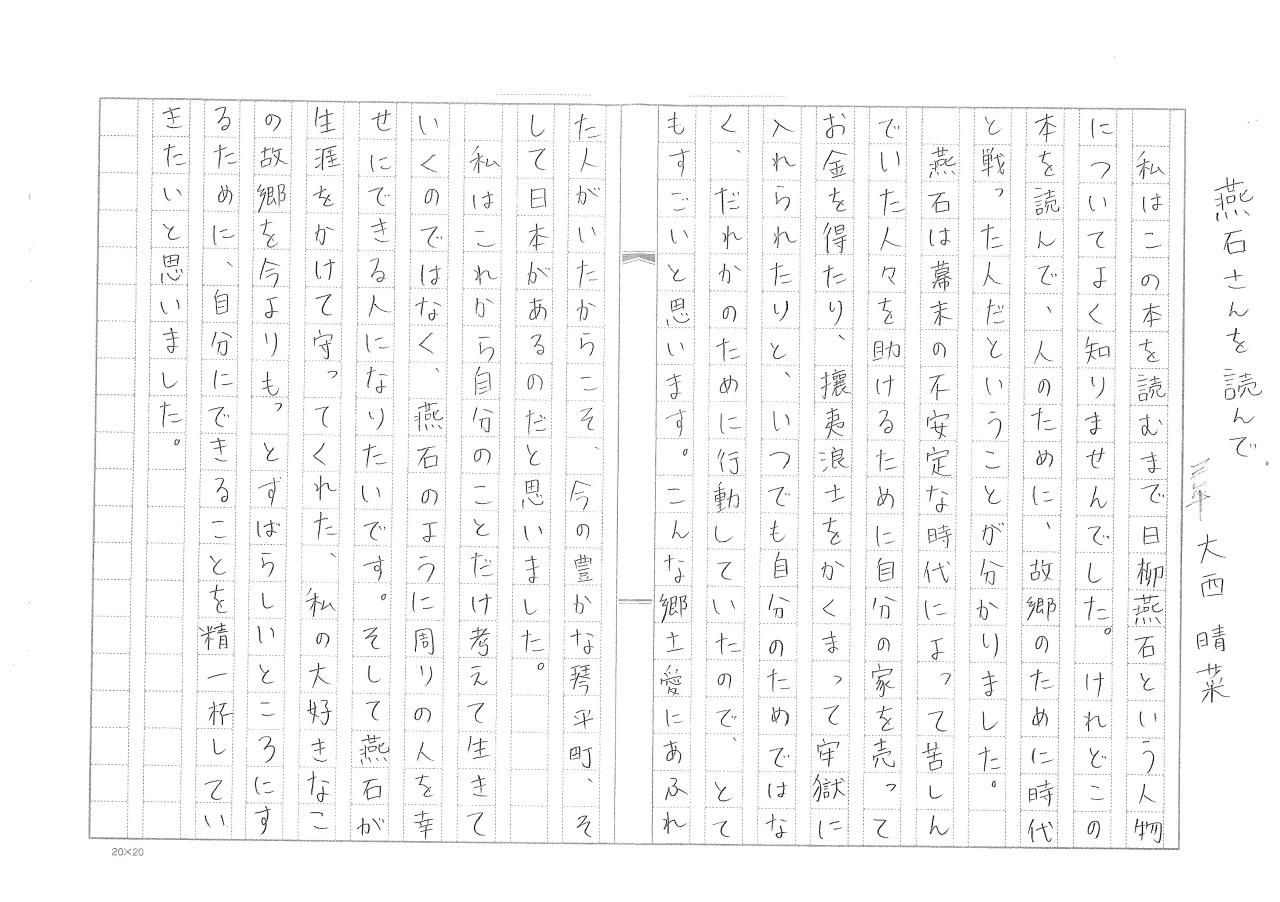 燕石さんを読んで
三年 大西 晴菜
私はこの本を読むまで日柳燕石という人物
についてよく知りませんでした。けれどこの
本を読んで、人のために、故郷のために時代
と戦った人だということが分かりました。
燕石は幕末の不安定な時代によって苦しん
でいた人々を助けるために自分の家を売って
お金を得たり、攘夷浪士をかくまって牢獄に
入れられたりと、いつでも自分のためではな
く、だれかのために行動していたので、とて
もすごいと思います。こんな郷土愛にあふれ
た人がいたからこそ、今の豊かな琴平町、そ
して日本があるのだと思いました。
私はこれから自分のことだけ考えて生きて
いくのではなく、燕石のように周りの人を幸
せにできる人になりたいです。そして燕石が
生涯をかけて守ってくれた、私の大好きなこ
の故郷を今よりもっとずばらしいところにす
るために、自分にできることを精一杯してい
きたいと思いました。
20×20